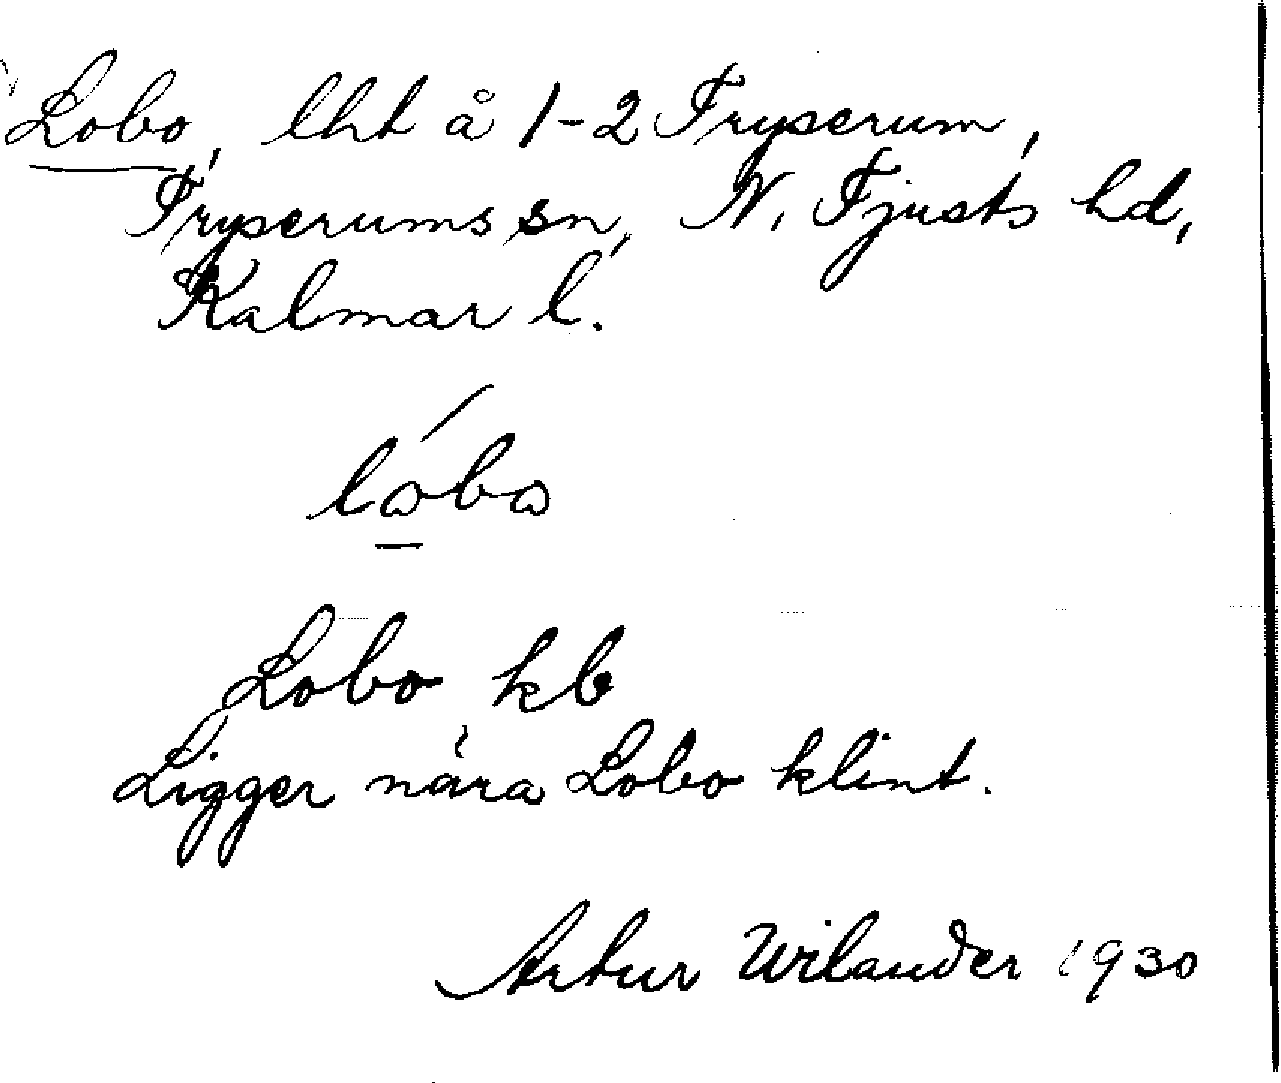 Lobo, lht å 1-2 Fryserum,
Fryserums sn, N. Tjusts hd,
Kalmar l.
lóbo
Lobo kb
Ligger nära Lobo klint.
Artur Wilander 1930